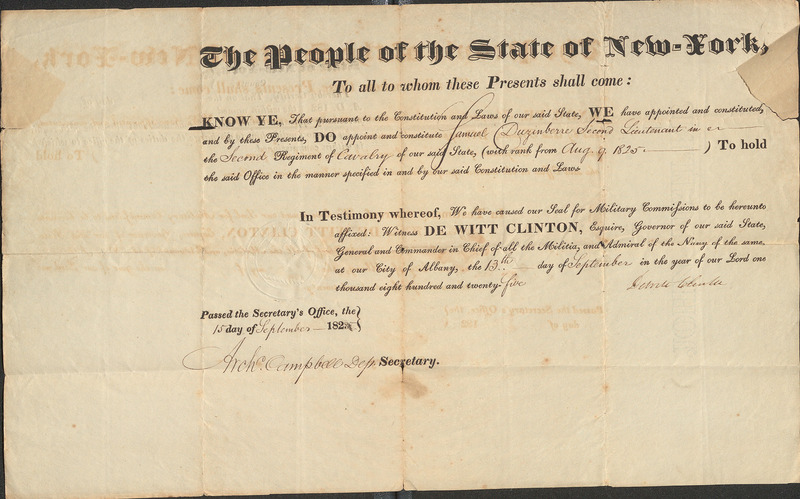 The People of the State of New-York,
To all to whom these Presents shall come:
KNOW YE, That pursuant to the Constitution and Laws of our said State, WE have appointed and constituted,
and by these Presents, DO appoint and constitute Samuel Duzinberre Second Lieutenant in
the Second Regiment of Cavalry of our said State, (with rank from Aug. 9. 1825 ) To hold
the said Office in the manner specified in and by our said Constitution and Laws
In Testimony whereof, We have caused our Seal for Military Commissions to be hereunto
affixed: Witness DE WITT CLINTON, Esquire, Governor of our said State,
General and Commander in Chief of all the Militia, and Admiral of the Navy of the same,
at our City of Albany, the 13th day of September in the year of our Lord one
thousand eight hundred and twenty-five
DeWitt Clinton
Passed the Secretary's Office, the
15 day of September 182
Archd. Campbell Dep. Secretary.